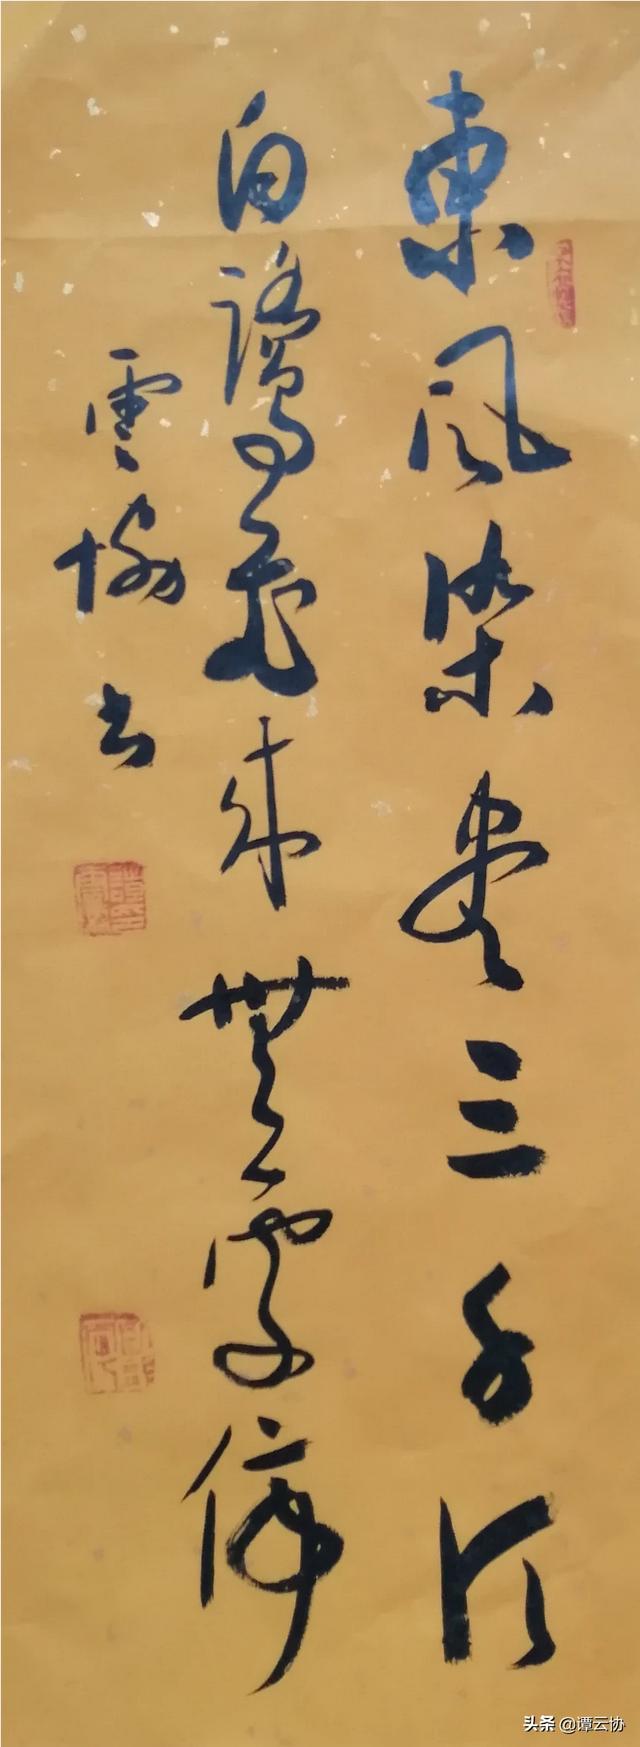 東風染盡三千頃
白鷺飛來無處停
雲協書
头条 @谭云协